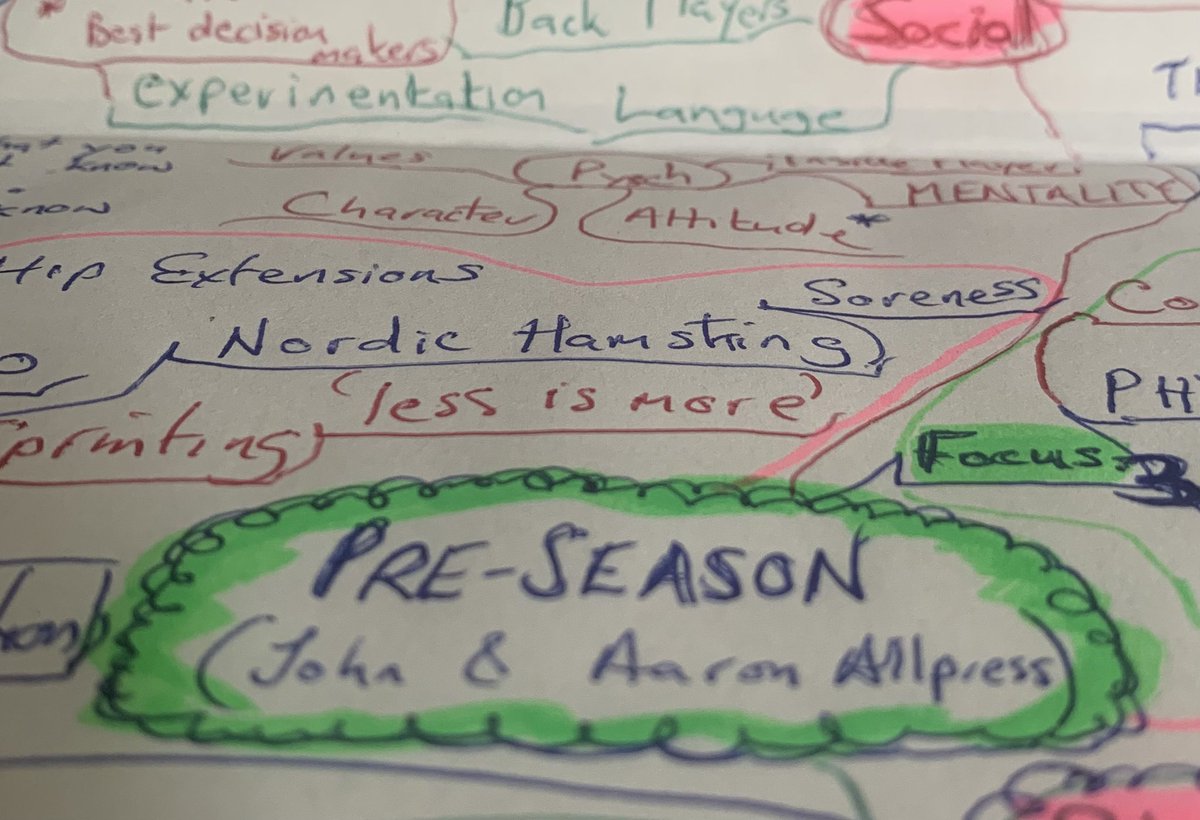 * Best decision
makers
Back Players
Social
experimentation
Language
you
know
Values
Psych
MENTALITY
know
Character
Attitude *
Hip Extensions
Soreness
Nordic Hamstring
'less is more'
Focus
PRE-SEASON
(John & Aaron Allpress)